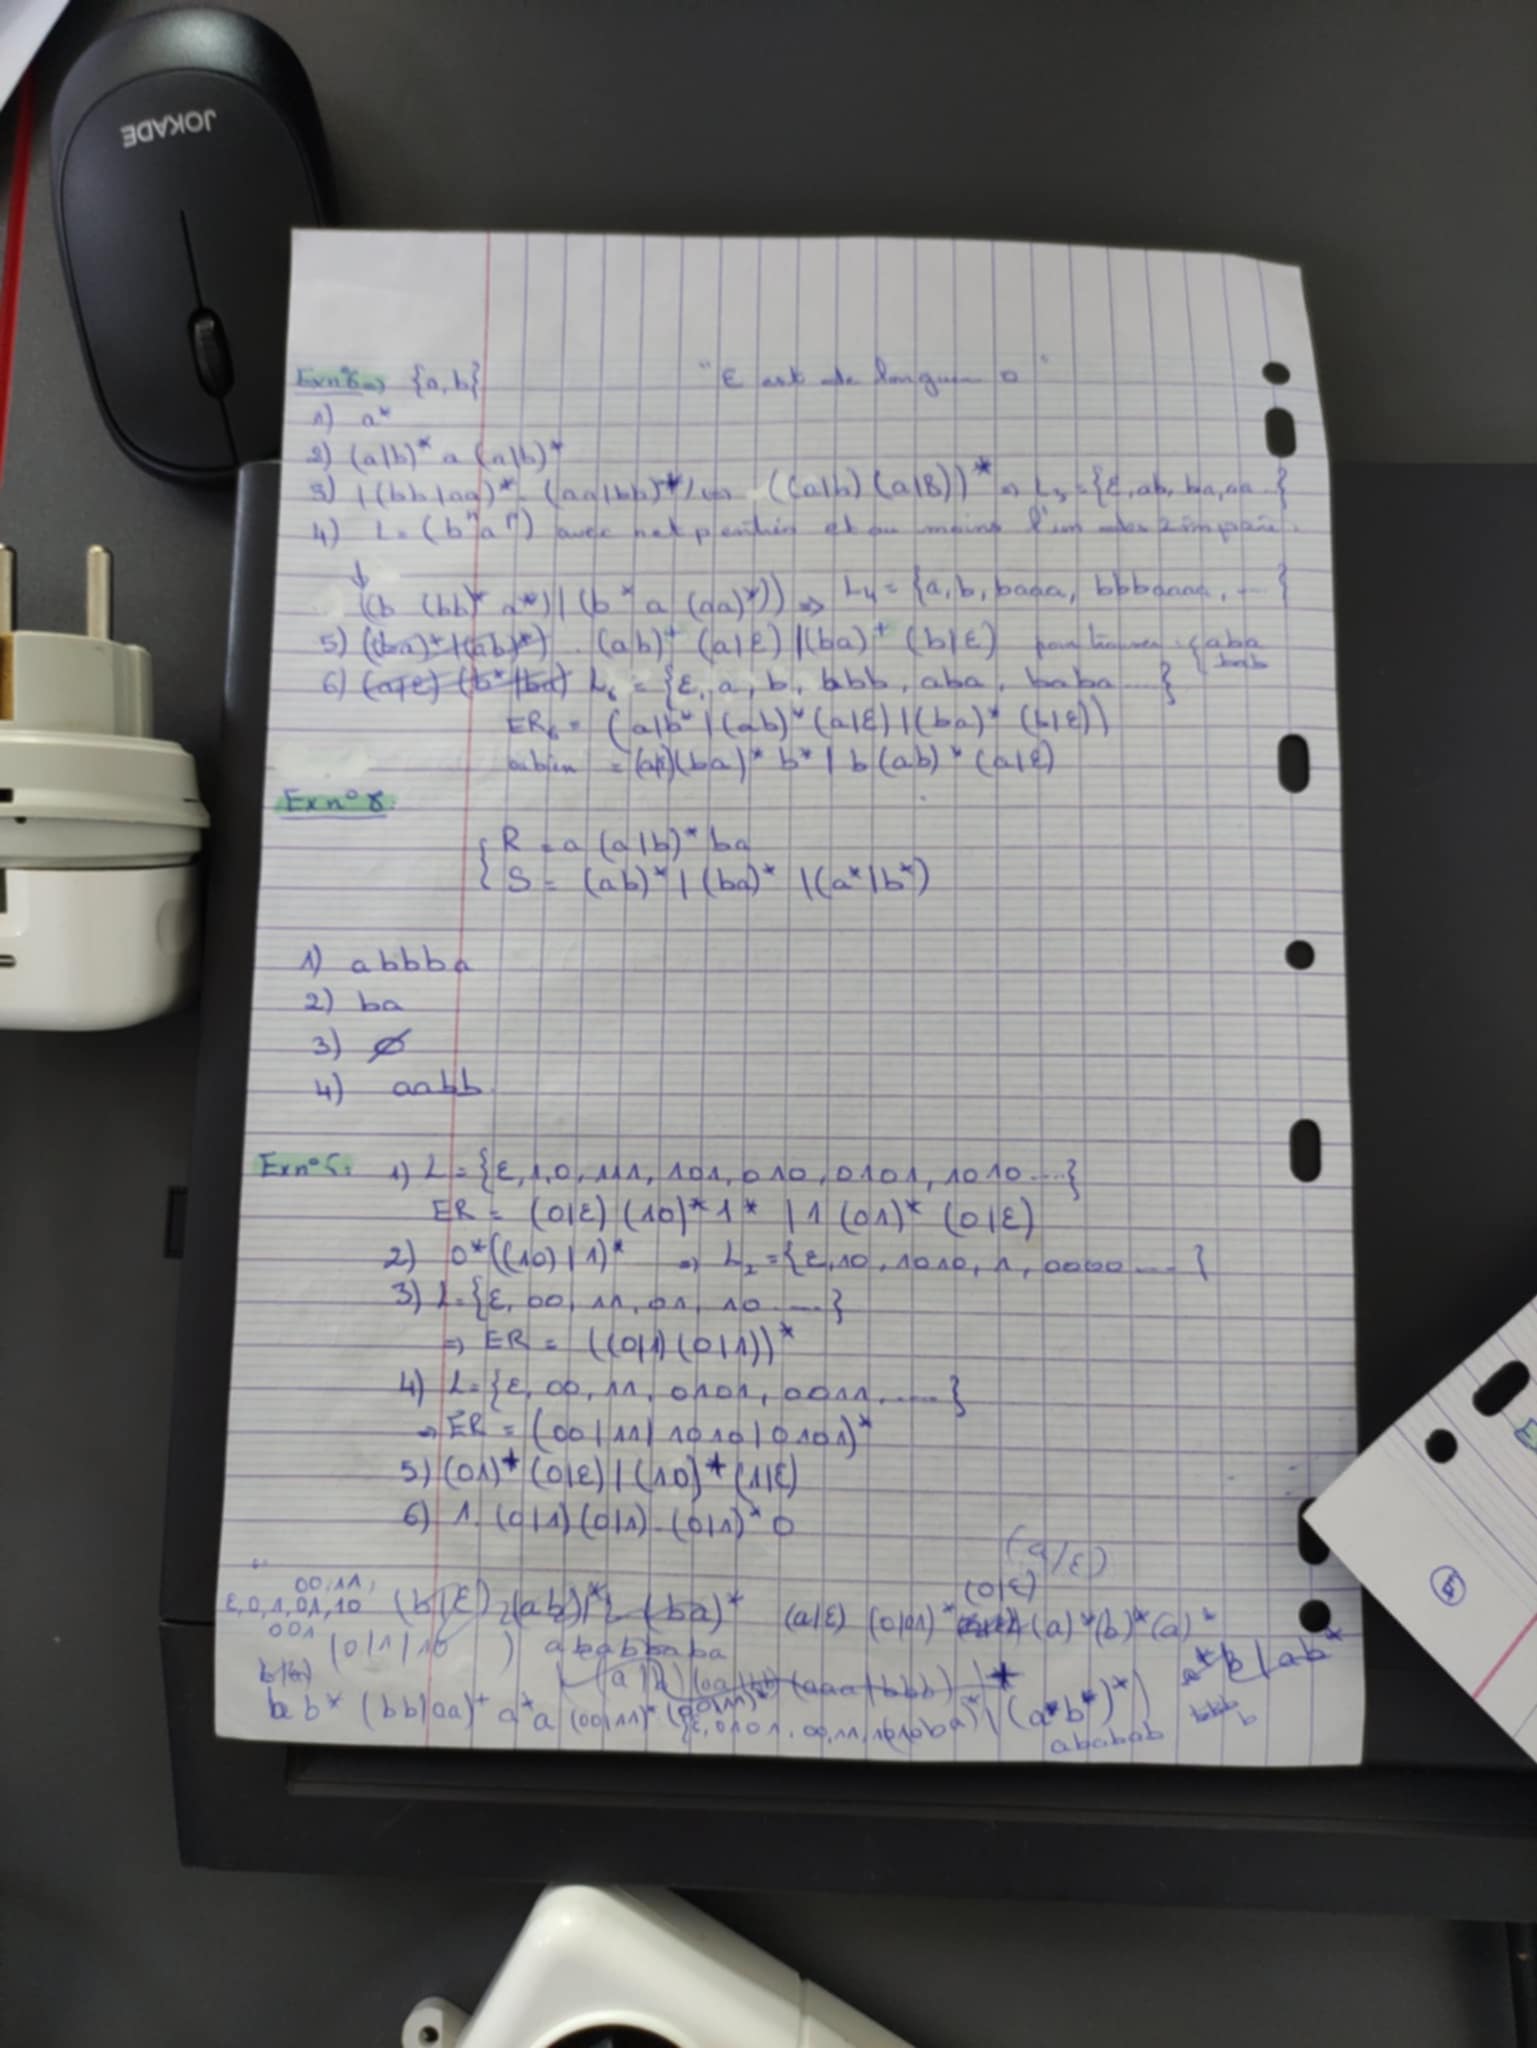 JOKADE
Exn°6 => {a, b} "ε est de longueur 0"
1) a*
2) (a|b)* a (a|b)*
3) | (bb|aa)* . (aa|bb)* / ((a|b) (a|b))* => L₃ = {ε, ab, ba, aa ... }
4) L = (bⁿ aᵖ) avec n et p entiers et au moins l'un des 2 impair.
↓
((b (bb)* a*) | (b* a (aa)*)) => L₄ = {a, b, baaa, bbbaaaa, ... }
5) ((ba)+ | (ab)*) . (ab)+ (a|ε) | (ba)+ (b|ε) pour trouver {aba
bab
6) (a|ε) (b*|ba) L₆ = {ε, a, b, bbb, aba, baba ... }
ER₆ = (a|b* | (ab)* (a|ε) | (ba)* (b|ε))
ou bien = (a|ε)(ba)* b* | b (ab)* (a|ε)
Ex n° 8:
{ R = a (a|b)* ba
S = (ab)* | (ba)* | (a*|b*)
1) abbba
2) ba
3) ∅
4) aabb.
Exn°5: 1) L = {ε, 1, 0, 111, 101, 010, 0101, 1010 ....}
ER = (0|ε) (10)* 1* | 1 (01)* (0|ε)
2) 0* ((10) | 1)* => L₂ = {ε, 10, 1010, 1, 0000 ... }
3) L = {ε, 00, 11, 01, 10 .... }
=> ER = ((0|1) (0|1))*
4) L = {ε, 00, 11, 0101, 0011, ..... }
=> ER = (00 | 11 | 1010 | 0101)*
5) (01)+ (0|ε) | (10)+ (1|ε)
6) 1. (0|1) (0|1) . (0|1)* 0
(a/ε)
00, 11, (0|ε)
ε, 0, 1, 01, 10 (b|ε) (ab)* (ba)* (a|ε) (0|01)* (a)* (b)* (a)*
001 (0|1|10 ) ababbaba a*b | ab*
b b* (bb|aa)+ a*a (00|11)* (a*b*)*) bbb
b
ababab